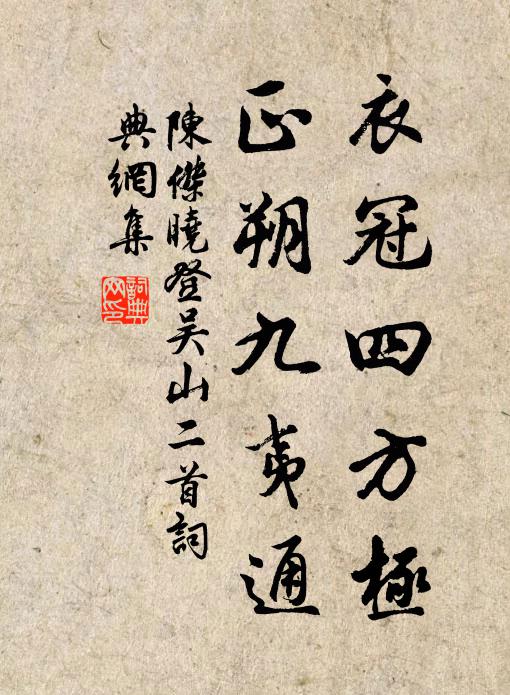 衣冠四方極
正朔九夷通
陳傑曉登吳山二首詞
典網集
詞典網印